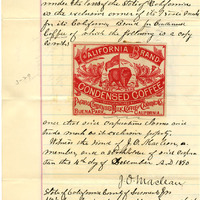 under the laws of the State of California
is the exclusive owner of its Trade Mark
for its California Brand for Condensed
Coffee of which the following is a copy
to wit:
CALIFORNIA BRAND
CONDENSED COFFEE
BUENA PARK, CALIFORNIA
and that said corporation claims said
trade mark as its exclusive property.
Witness the hand of J. O. Maclean, a
member and a of said Corpo-
ration the 4th day of December A.D. 1890
J. O. Maclean
State of California County of